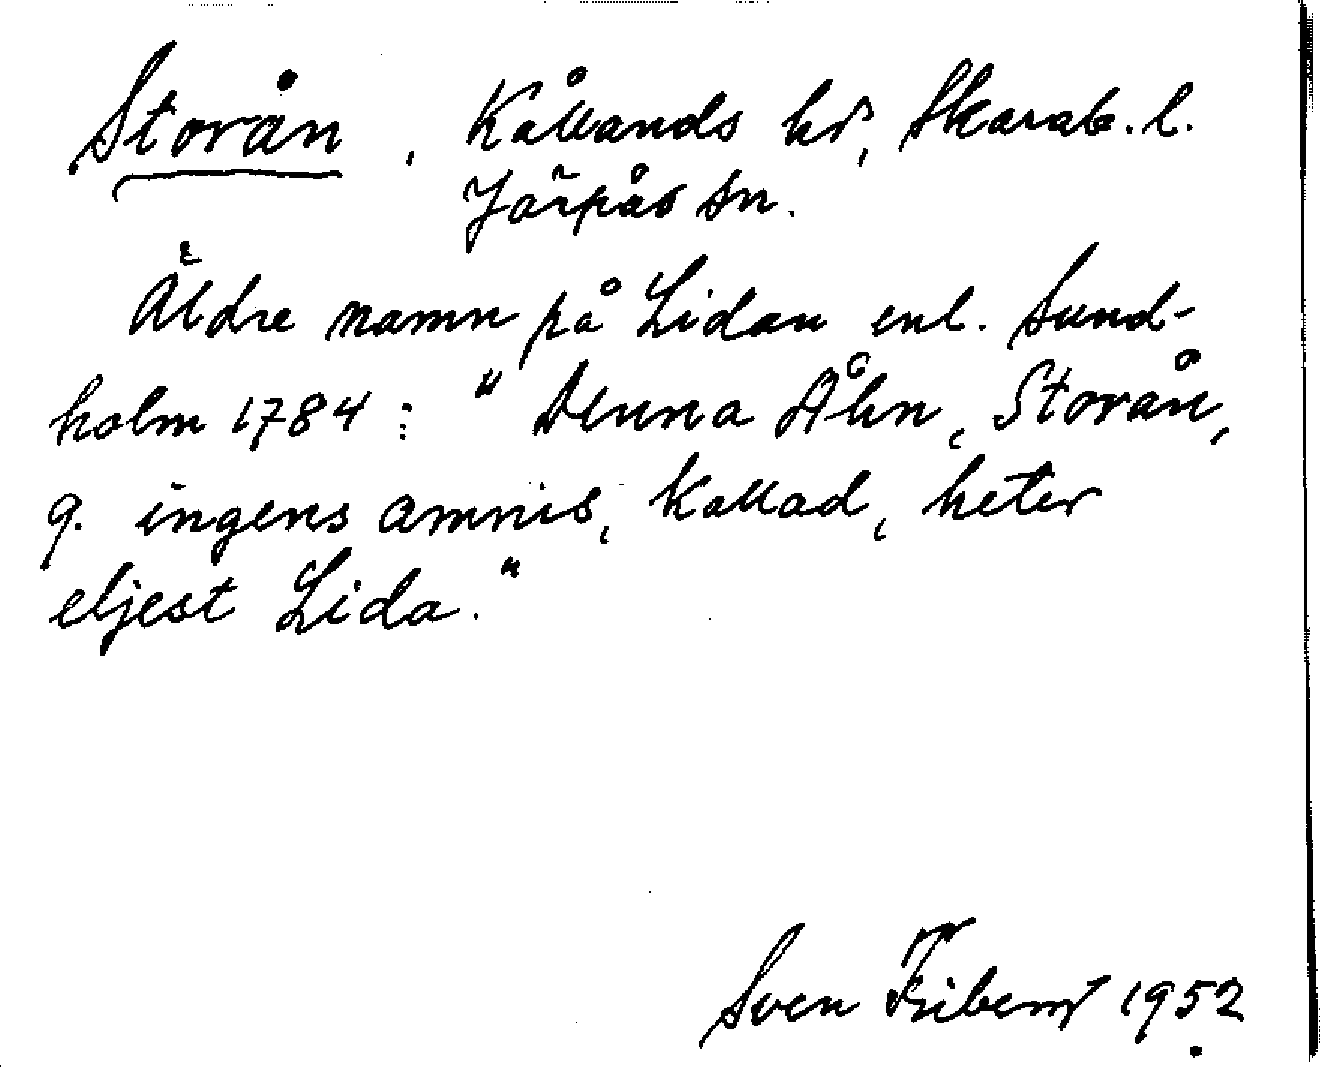 Storån, Kållands hd, Skarab. l.
Järpås sn.
Äldre namn på Lidan enl. Sund-
holm 1784: "Denna Åhn, Storån,
q. ingens amnis, kallad, heter
eljest Lida."
Sven 1952